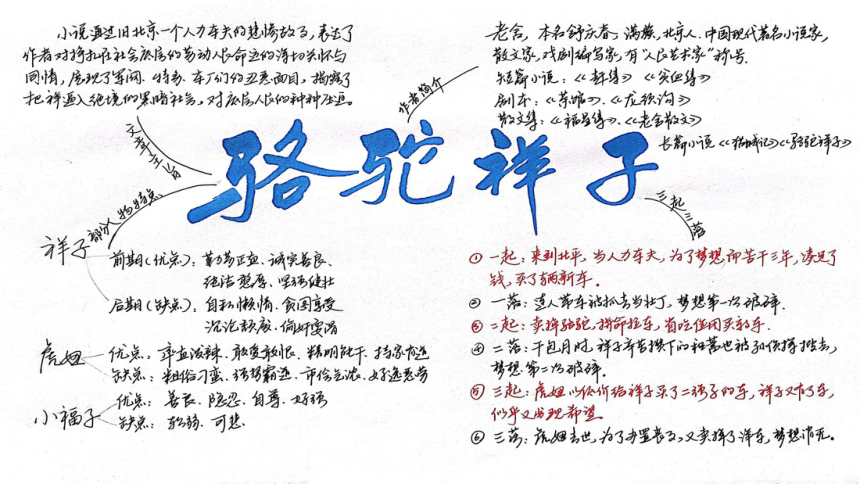 小说通过旧北京一个人力车夫的悲惨故事，表达了
作者对挣扎在社会底层的劳动人民命运的深切关怀与
同情，展现了军阀、特务、车厂们的丑恶面目，揭露了
把祥逼入绝境的黑暗社会，对底层人民的种种压迫。
文章主旨
作者简介
老舍，本名舒庆春，满族，北京人．中国现代著名小说家，
散文家，戏剧编写家，有“人民艺术家”称号．
短篇小说：《赶集》《贫血集》
剧本：《茶馆》．《龙须沟》
散文集：《福星集》．《老舍散文》
长篇小说《猫城记》《骆驼祥子》
骆驼祥子
部分人物特点
祥子
前期(优点)：勤劳正直、诚实善良、
纯洁憨厚、坚强健壮
后期(缺点)：自私懒惰、贪图享受
沉沦颓废、
虎妞
优点：率直泼辣．敢爱敢恨．精明能干．持家有道
缺点：粗俗刁蛮．强势霸道．市侩气浓．好逸恶劳
小福子
优点：善良．隐忍．自尊．好强
缺点：软弱．可悲．
三起三落
① 一起：来到北平，当人力车夫，为了梦想而苦干三年，凑足了
钱，买了辆新车．
② 一落：连人带车被抓去当壮丁，梦想第一次破碎．
③ 二起：卖掉骆驼，拼命拉车，省吃俭用买新车．
④ 二落：干包月时，祥子辛苦攒下的积蓄也被孙侦探抢去，
梦想第二次破碎．
⑤ 三起：虎妞以低价给祥子买了二强子的车，祥子又有了车，
似乎又出现希望．
⑥ 三落：虎妞去世，为了办置丧事，又卖掉了洋车，梦想消无．